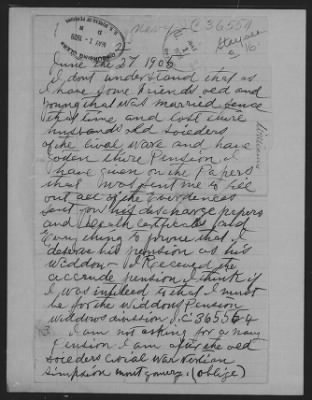 Navy C 36554
U.S. BUREAU OF PENSIONS
MAY 1 1909
June the 27 1906
I dont understand that as
I have some friends old and
young that was married sence
that time and lost there
husbands old soleders
of the Cival Ware and have
goten there Pension I
have given on the Papers
that was sent me to fill
out all of the Evedences
sent for his discharge papers
and Death Certficates and
Every thing to prove that I
deserve his pension as his
widdow I Received the
accrude pension I think if
I was intiteed to that I must
be for the widdows Pension
widdows division C 36556 4
3 I am not asking for a navy
Pension I am after the old
soleders Cival War
Simpsion montgomery. (oblige)